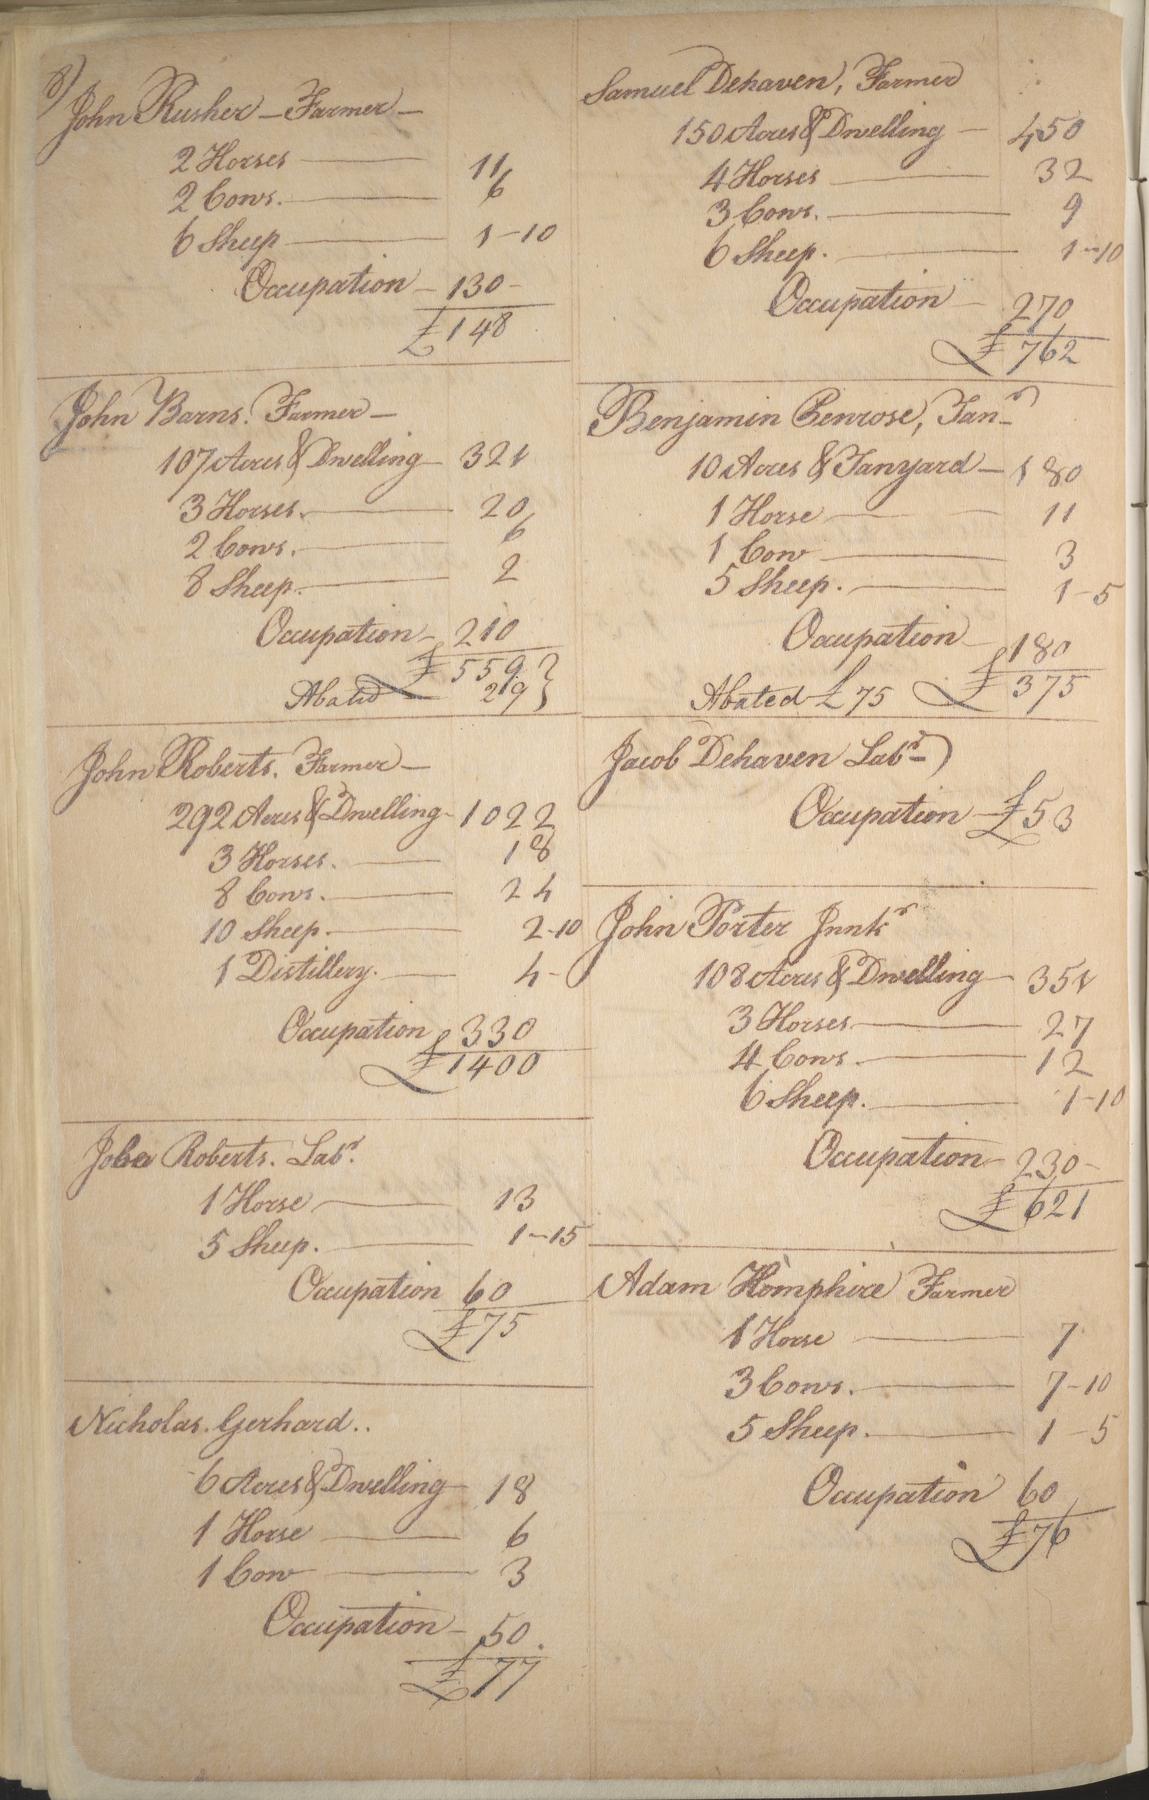 8)
John Rusher - Farmer -
2 Horses 11
2 Cows. 6
6 Sheep 1-10
Occupation - 130 -
£148
John Barns. Farmer -
107 Acres & Dwelling 321
3 Horses. 20
2 Cows. 6
8 Sheep. 2
Occupation - 210
£559 }
Abated 29 }
John Roberts. Farmer -
292 Acres & Dwelling - 1022
3 Horses. 18
8 Cows. 24
10 Sheep. 2-10
1 Distillery. 4-
Occupation 330
£1400
Roberts. Labr.
1 Horse 13
5 Sheep. 1-15
Occupation 60
£75
Nicholas. Gerhard..
6 Acres & Dwelling 18
1 Horse 6
1 Cow 3
Occupation - 50.
£77
Samuel Dehaven, Farmer
150 Acres & Dwelling - 450
4 Horses 32
3 Cows. 9
6 Sheep. 1-10
Occupation - 270
£762
Benjamin Penrose, Tanr
10 Acres & Tanyard - 180
1 Horse 11
1 Cow 3
5 Sheep. 1-5
Occupation - 180
£375
Abated £75
Jacob Dehaven Labr
Occupation - £53
John Porter Innkr
108 Acres & Dwelling - 351
3 Horses 27
4 Cows. 12
6 Sheep. 1-10
Occupation - 230 -
£621
Adam Homphire Farmer
1 Horse 7
3 Cows. 7-10
5 Sheep. 1-5
Occupation 60
£76